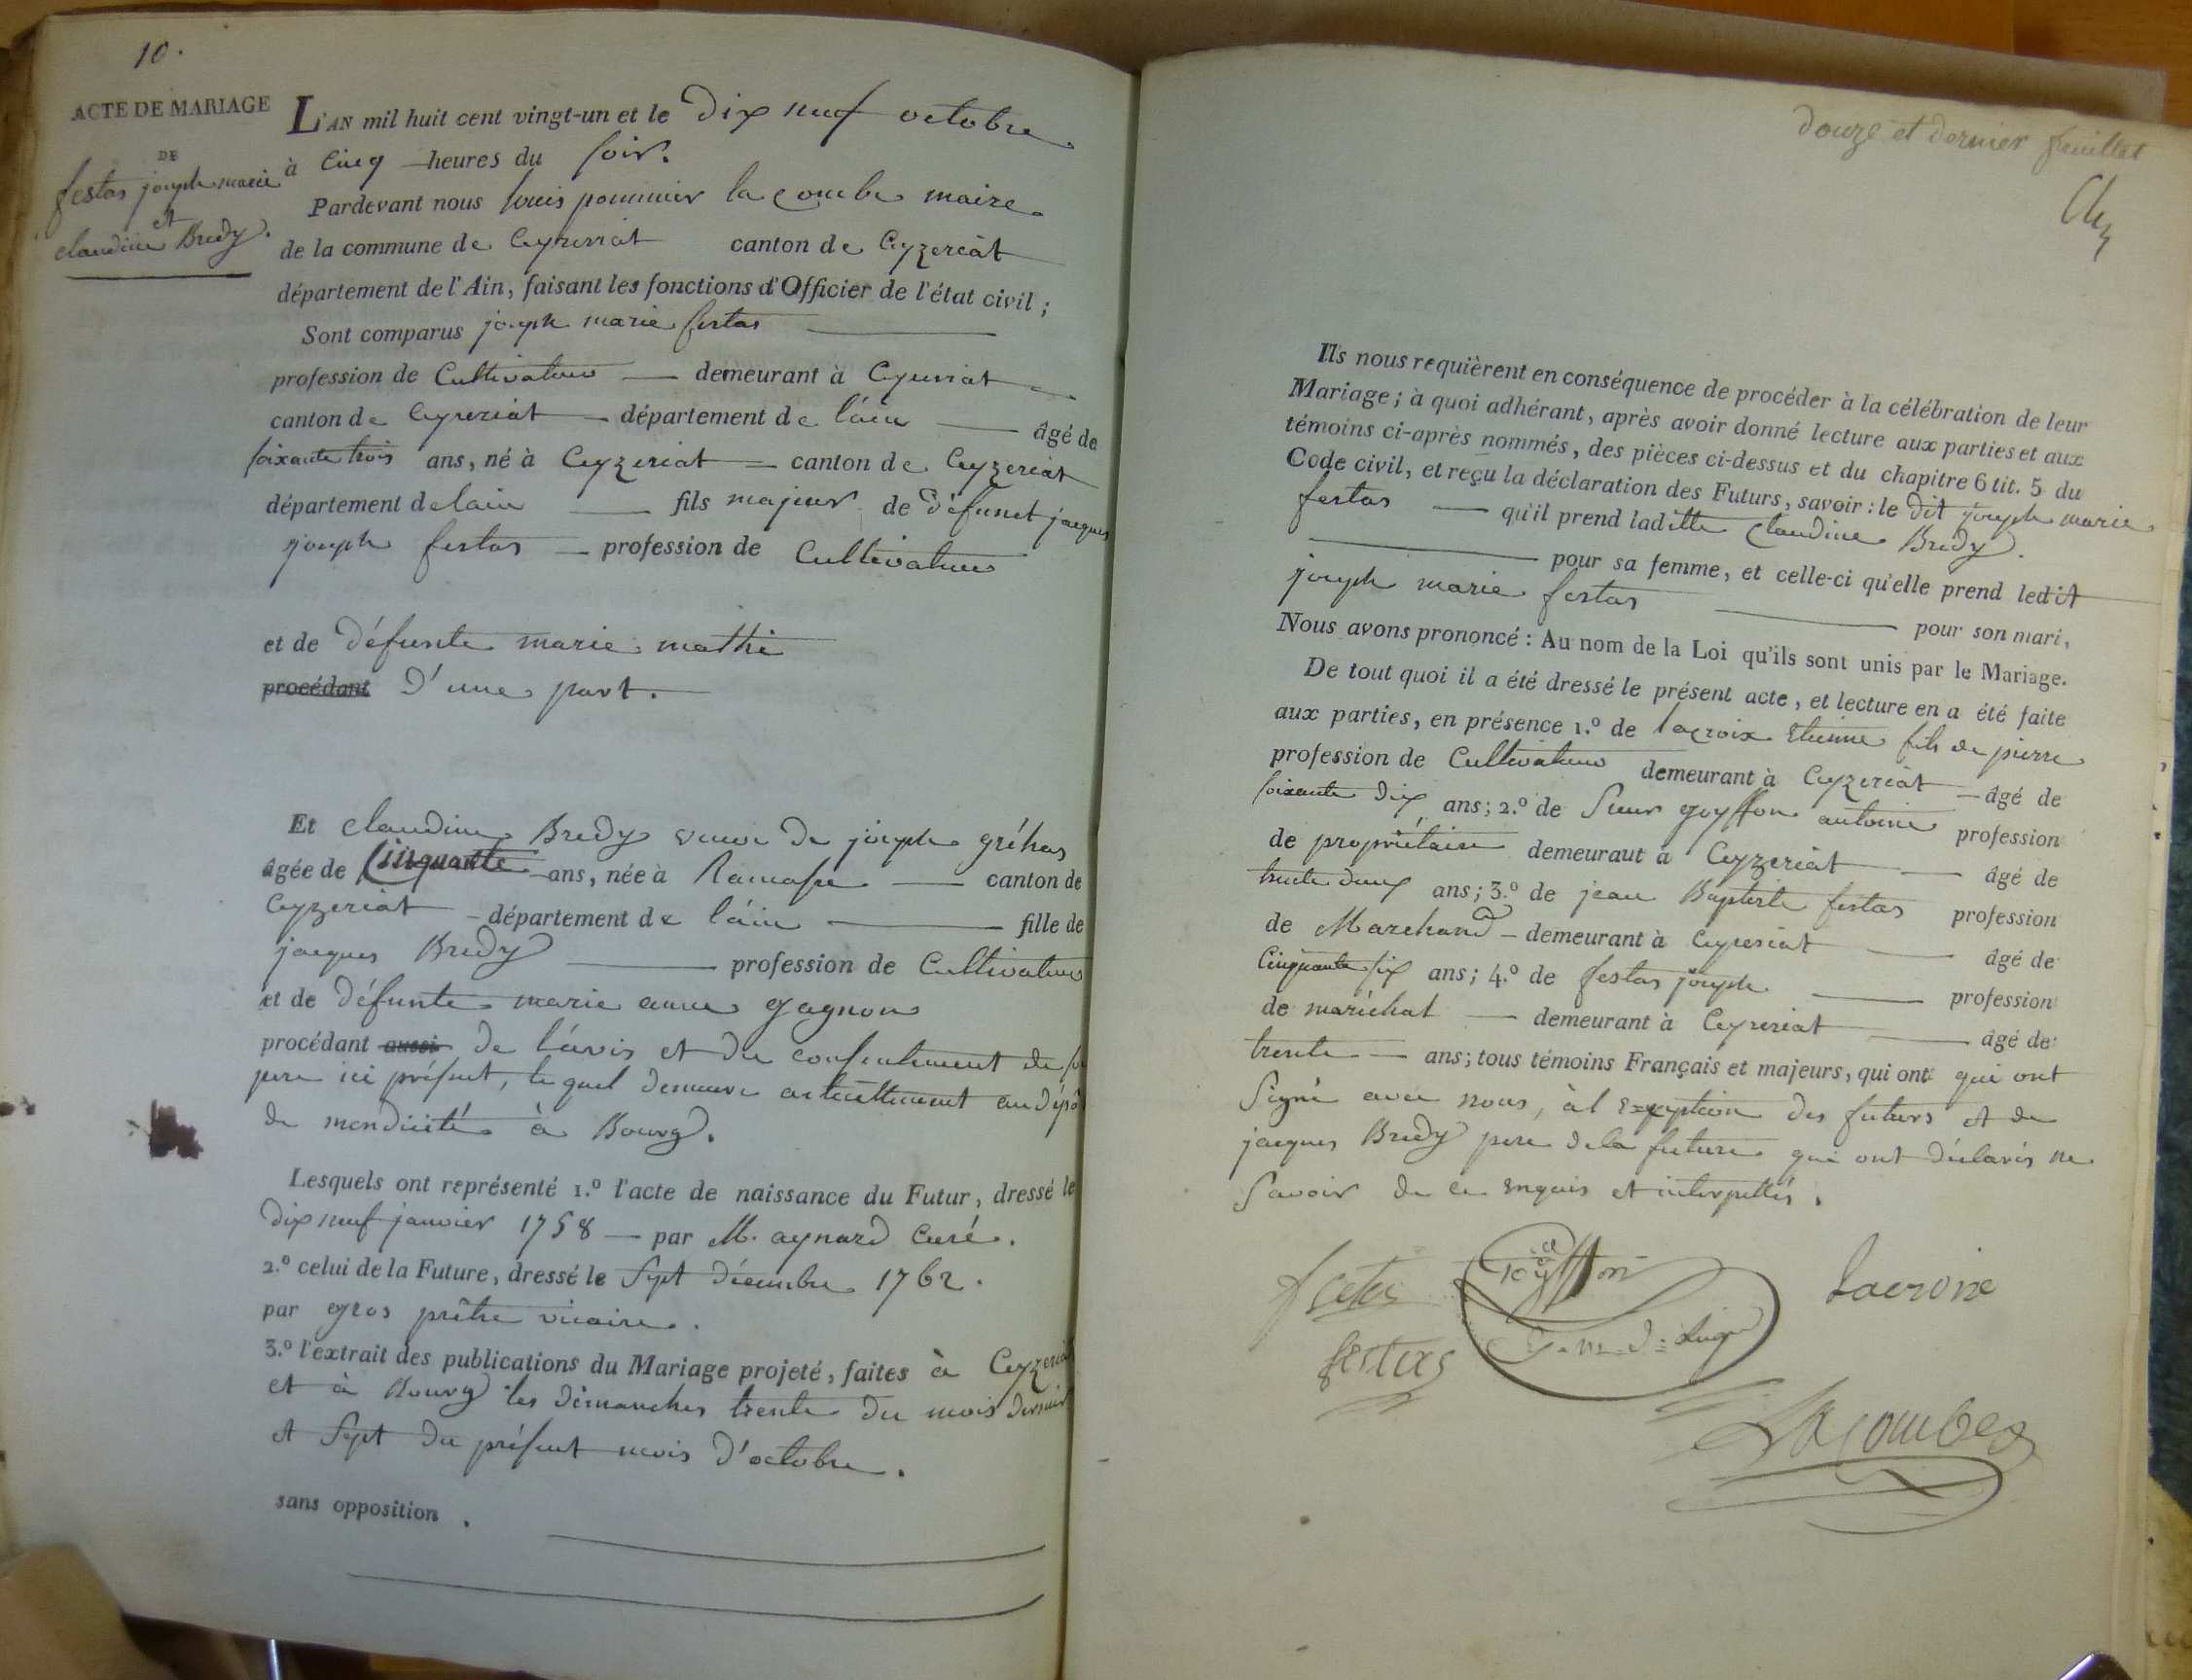 10.
ACTE DE MARIAGE
DE
festas joseph marie
et
claudine Bredy.
L'AN mil huit cent vingt-un et le dix neuf octobre
à Cinq heures du soir.
Pardevant nous louis pommier la combe maire
de la commune de Ceyzeriat canton de Ceyzeriat
département de l'Ain, faisant les fonctions d'Officier de l'état civil;
Sont comparus joseph marie festas
profession de Cultivateur demeurant à Ceyzeriat
canton de Ceyzeriat département de l'ain âgé de
soixante trois ans, né à Ceyzeriat canton de Ceyzeriat
département de lain fils majeur de défunct jacques
joseph festas profession de Cultivateur
et de défunte marie mathi
procédant d'une part.
Et claudine Bredy veuve de joseph gréhas
âgée de Cinquante ans, née à Ramasse canton de
Ceyzeriat département de l'ain fille de
jacques Bredy profession de Cultivateur
et de défunte marie anne gagnon
procédant aussi de l'avis et du consentement de
pere ici présent, lequel demeure actuellement au dépô
de mendicité à Bourg.
Lesquels ont représenté 1.º l'acte de naissance du Futur, dressé le
dix neuf janvier 1758 par M. aynard Curé.
2.º celui de la Future, dressé le sept décembre 1762.
par gros prêtre vicaire.
3.º l'extrait des publications du Mariage projeté, faites à Ceyzeriat
et à Bourg les dimanches trente du mois dernier
et sept du présent mois d'octobre.
sans opposition.
douze et dernier feuillet
Ils nous requièrent en conséquence de procéder à la célébration de leur
Mariage; à quoi adhérant, après avoir donné lecture aux parties et aux
témoins ci-après nommés, des pièces ci-dessus et du chapitre 6 tit. 5 du
Code civil, et reçu la déclaration des Futurs, savoir: le dit joseph marie
festas qu'il prend laditte Claudine Bredy.
pour sa femme, et celle-ci qu'elle prend ledit
joseph marie festas pour son mari,
Nous avons prononcé: Au nom de la Loi qu'ils sont unis par le Mariage.
De tout quoi il a été dressé le présent acte, et lecture en a été faite
aux parties, en présence 1.º de lacroix Etienne fils de pierre
profession de Cultivateur demeurant à Ceyzeriat âgé de
soixante dix ans; 2.º de Sieur goyffon antoine profession
de propriétaire demeurant à Ceyzeriat âgé de
trente deux ans; 3.º de jean Baptiste festas profession
de Marchand demeurant à Ceyzeriat âgé de
Cinquante six ans; 4.º de festas joseph profession
de maréchal demeurant à Ceyzeriat âgé de
trente ans; tous témoins Français et majeurs, qui ont qui ont
Signé avec nous, à l'exception des futurs et de
jacques Bredy pere de la future qui ont déclarés ne
Savoir de ce enquis et interpellés.
festas Goyffon Lacroix
festas
Lacombe